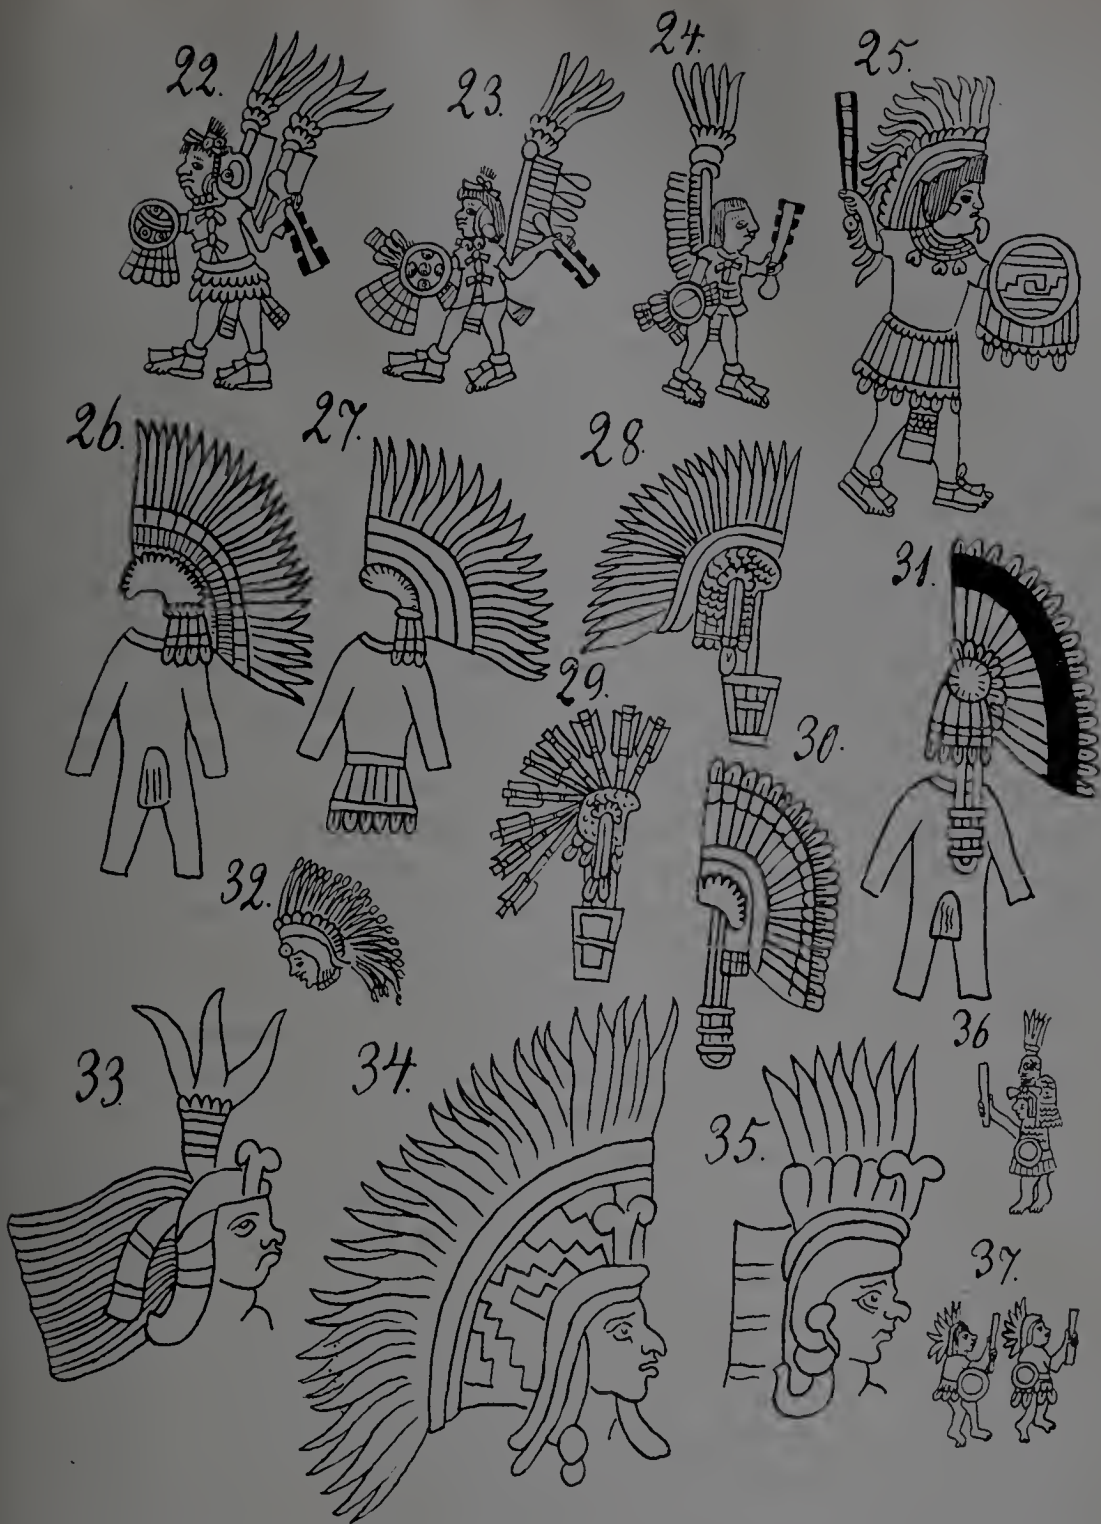 22.
23.
24.
25.
26.
27.
28.
29.
30.
31.
32.
33.
34.
35.
36
37.